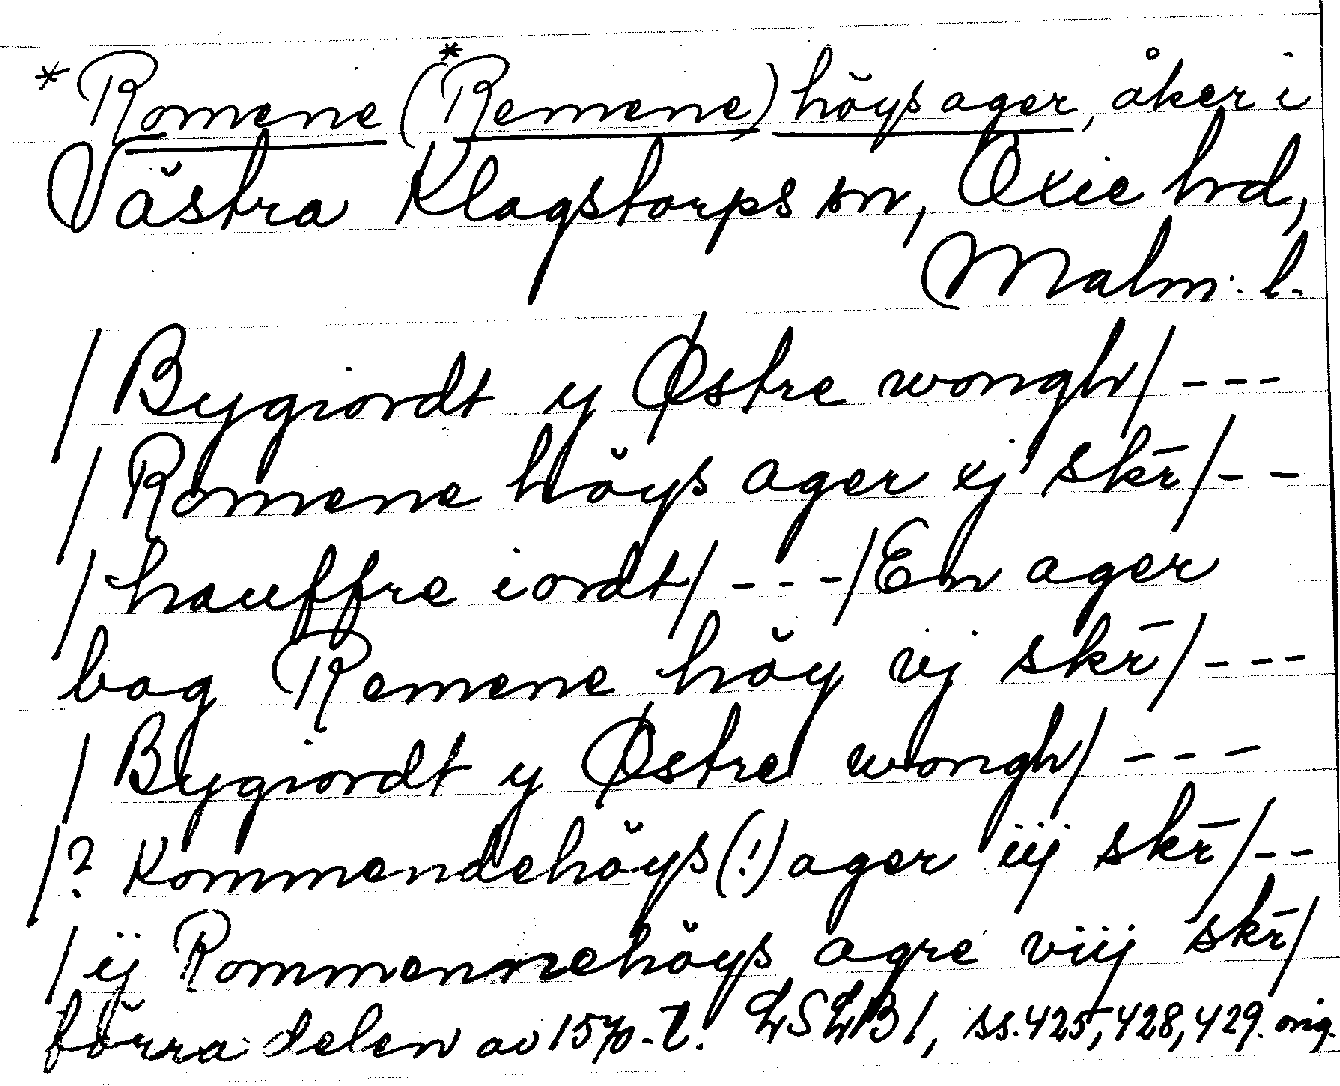 *Romene (*Remene) höys ager, åker i
Västra Klagstorps sn, Oxie hd,
Malm. l.
/Bygiordt y Østre wongh/ ---
/Romene höys ager xj skr̄/ --
/hauffre iordt/ --- /En ager
bag Remene höy vj skr̄/ ---
/Bygiordt y Østre wongh/ ---
/? Kommendehöys(!) ager iij skr̄/ --
/ij Rommennehöys agre viij skr̄/
förra delen av 1570-t. LSLB 1, ss. 425, 428, 429. orig.